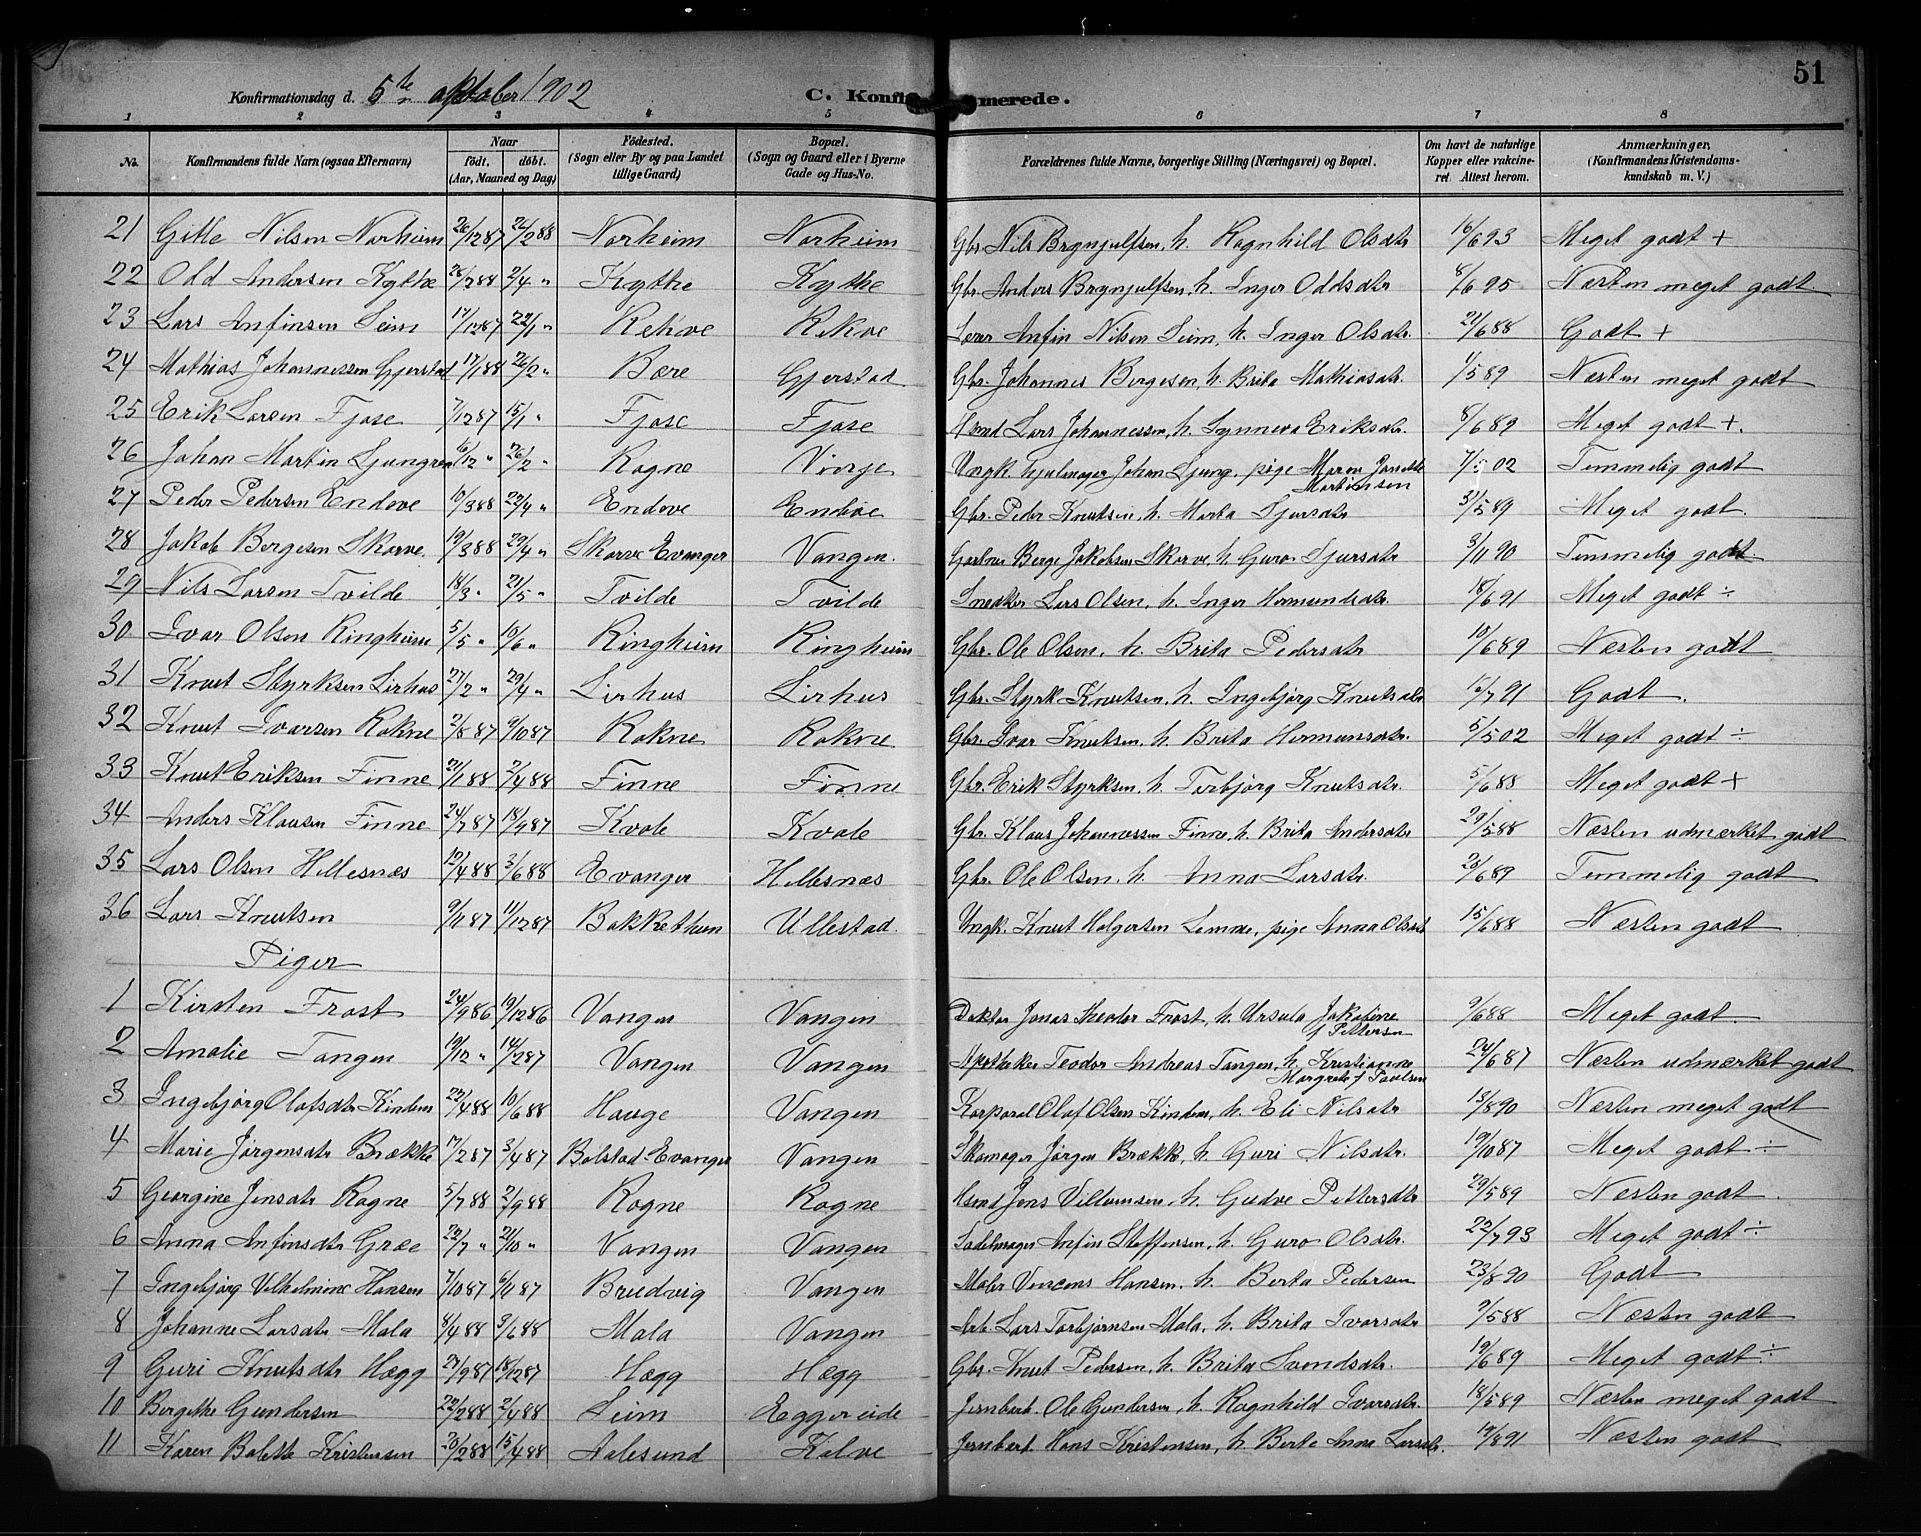 51
Konfirmationsdag d. 5te oktober 1902 C. Konfirmerede.
1 2 3 4 5 6 7 8
No. Konfirmandens fulde Navn (ogsaa Efternavn) Naar født, døbt. (Aar, Maaned og Dag) Födested. (Sogn eller By og paa Landet tillige Gaard) Bopæl. (Sogn og Gaard eller i Byerne Gade og Hus-No. Forældrenes fulde Navne, borgerlige Stilling (Næringsvei) og Bopæl. Om havt de naturlige Kopper eller vakcineret. Attest herom. Anmærkninger, (Konfirmandens Kristendomskundskab m. V.)
21 Gitle Nilsen Norheim 26/12 87 26/2 88 Norheim Norheim Gbr. Nils Brynjulfsen, h. Ragnhild Olsdtr 16/6 93 Meget godt +
22 Odd Andersen Kythe 26/2 88 2/4 " Kythe Kythe Gbr. Anders Brynjulfsen, h. Inger Oddsdtr 8/6 95 Næsten meget godt
23 Lars Anfinsen Seim 17/12 87 22/1 " Rekve Rekve Lærer Anfin Nilsen Seim, h. Inger Olsdtr. 21/6 88 Godt +
24 Mathias Johannessen Gjerstad 17/1 88 26/2 " Bære Gjerstad Gbr. Johannes Bergesen, h. Brita Mathiasdtr. 1/5 89 Næsten meget godt
25 Erik Larsen Fjose 7/12 87 15/1 " Fjose Fjose Hsmd Lars Johannessen, h. Synneva Eriksdtr. 8/6 89 Meget godt +.
26 Johan Martin Ljungren 16/12 " 26/2 " Rogne Vinje Ungk. hjulmager Johan Ljung, pige Maren Janette Martinsen 7/5 02 Temmelig godt
27 Peder Pedersen Endeve 10/3 88 22/4 " Endeve Endeve Gbr. Peder Knutsen, h. Marta Sjursdtr 31/5 89 Meget godt.
28 Jakob Bergesen Skorve 19/3 88 29/4 " Skorve Evanger Vangen. Gartner Berge Jakobsen Skorve, h. Guro Sjursdtr 3/11 90 Temmelig godt.
29 Nils Larsen Tvilde 18/3 " 21/5 " Tvilde Tvilde Snedker Lars Olsen, h. Inger Hermundsdtr. 18/6 91 Meget godt ÷
30 Ivar Olsen Ringheim 5/5 " 10/6 " Ringheim Ringheim Gbr. Ole Olsen, h. Brita Pedersdtr 10/6 89 Næsten godt
31 Knut Styrksen Lirhus 27/2 " 29/4 " Lirhus Lirhus Gbr. Styrk Knutsen, h. Ingebjørg Knutsdtr 16/7 91 Godt.
32 Knut Ivarsen Rokne 2/8 87 9/10 87 Rokne Rokne. Gbr. Ivar Knutsen, h. Brita Hermunsdtr. 5/5 02 Meget godt ÷
33 Knut Eriksen Finne 21/1 88 2/4 88 Finne Finne Gbr. Erik Styrksen, h. Torbjørg Knutsdtr. 5/6 88 Meget godt +
34 Anders Klausen Finne 24/7 87 18/9 87 Kvale Kvale Gbr. Klaus Johannessen Finne, h. Brita Andersdtr 29/5 88 Næsten udmærket godt
35 Lars Olsen Hellesnæs 19/4 88 3/6 88 Evanger Hellesnæs Gbr. Ole Olsen, h. Anna Larsdtr. 26/6 89 Temmelig godt
36 Lars Knutsen 9/11 87 11/12 87 Bakkethun Ullestad. Ungk. Knut Holgersen Lemme, pige Anna Olsdtr 15/6 88 Næsten godt
Piger
1 Kirsten Frost 24/9 86 19/12 86 Vangen Vangen Doktor Jonas Theodor Frost, h. Ursula Jakobine f Pettersen 9/6 88 Meget godt
2 Amalie Tangen 19/12 " 14/2 87 Vangen Vangen Apotheker Teodor Andreas Tangen, h. Kristianne Margrete f Paulsen 24/6 87 Næsten udmærket godt
3 Ingebjørg Olafsdtr Kindem 22/4 88 10/6 88 Hauge Vangen Korporal Olaf Olsen Kindem, h. Eli Nilsdtr 13/8 90 Næsten meget godt
4 Marie Jørgensdtr Brække 17/2 87 3/4 87 Bolstad Evanger Vangen Skomager Jørgen Brække, h. Guri Nilsdtr. 19/10 87 Meget godt ÷
5 Georgine Jensdtr Rogne 5/7 88 2/9 88 Rogne Rogne Hsmd Jens Villumsen, h. Gudve Pettersdtr 29/5 89 Næsten godt
6 Anna Anfinsdtr Græe 22/7 " 21/10 " Vangen Vangen Sadelmager Anfin Steffensen, h. Guro Olsdtr. 22/7 93 Meget godt ÷
7 Ingebjørg Vilhelmine Hansen 7/10 87 6/11 87 Brudvig Vangen Maler Hansen, h. Berta Pedersen 23/8 90 Godt
8 Johanne Larsdtr Mala 8/4 88 3/6 88 Mala Vangen Arb. Lars Torbjørnsen Mala, h. Brita Ivarsdtr 9/5 88 Næsten godt
9 Guri Knutsdtr Hægg 27/9 87 18/12 87 Hægg Hægg Gbr. Knut Pedersen, h. Brita Svendsdtr. 19/6 89 Meget godt ÷
10 Bergethe Gundersen 22/2 88 2/4 88 Seim Eggereide Jernbarb. Ole Gundersen, h. Ragnhild Ivarsdtr. 18/5 89 Næsten meget godt
11 Karen Bolette Kristensen 20/2 88 15/4 88 Aalesund Kalve Jernbarb. Hans Kristensen, h. Berte Anna Larsdtr. 17/8 91 Næsten godt